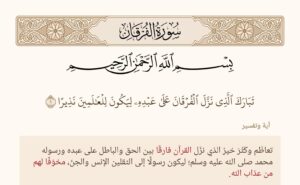 سُورَةُ الفُرْقَانِ
بِسْمِ اللَّهِ الرَّحْمَنِ الرَّحِيمِ
تَبَارَكَ الَّذِي نَزَّلَ الْفُرْقَانَ عَلَىٰ عَبْدِهِ لِيَكُونَ لِلْعَالَمِينَ نَذِيرًا ﴿١﴾
آية وتفسير
تعاظم وكثر خيرُ الذي نزّل القرآن فارقًا بين الحق والباطل على عبده ورسوله
محمد صلى الله عليه وسلم؛ ليكون رسولًا إلى الثقلين الإنس والجنّ، مخوّفًا لهم
من عذاب الله.